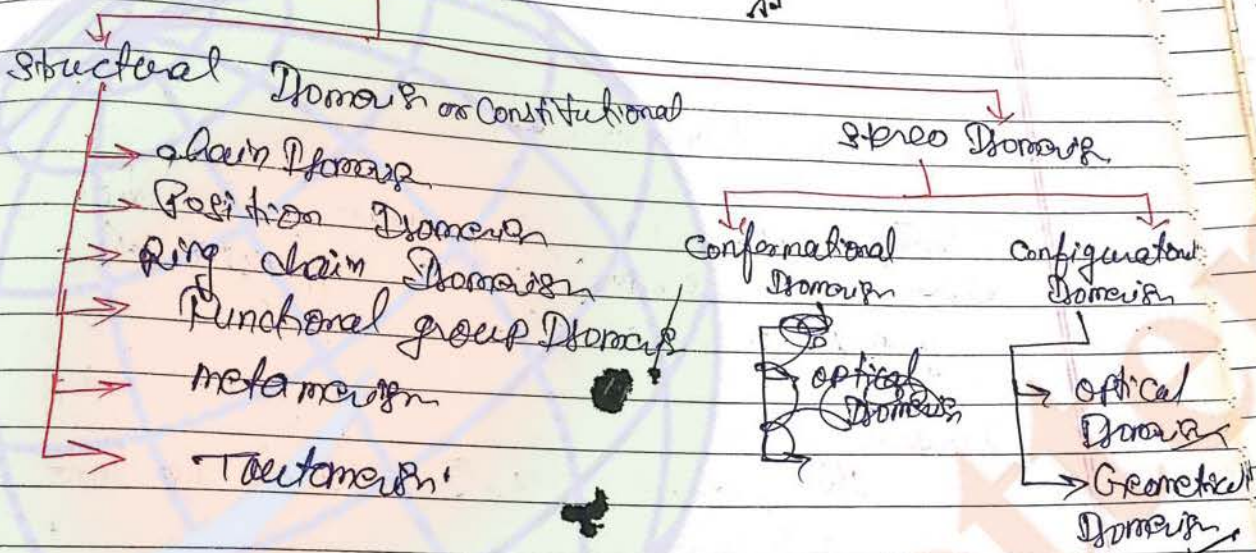 Structural Isomerism or Constitutional
chain Isomerism
Position Isomerism
Ring chain Isomerism
Functional group Isomerism
metamerism
Tautomerism
Stereo Isomerism
Conformational
Isomerism
optical
Isomerism
Configurational
Isomerism
optical
Isomerism
Geometrical
Isomerism